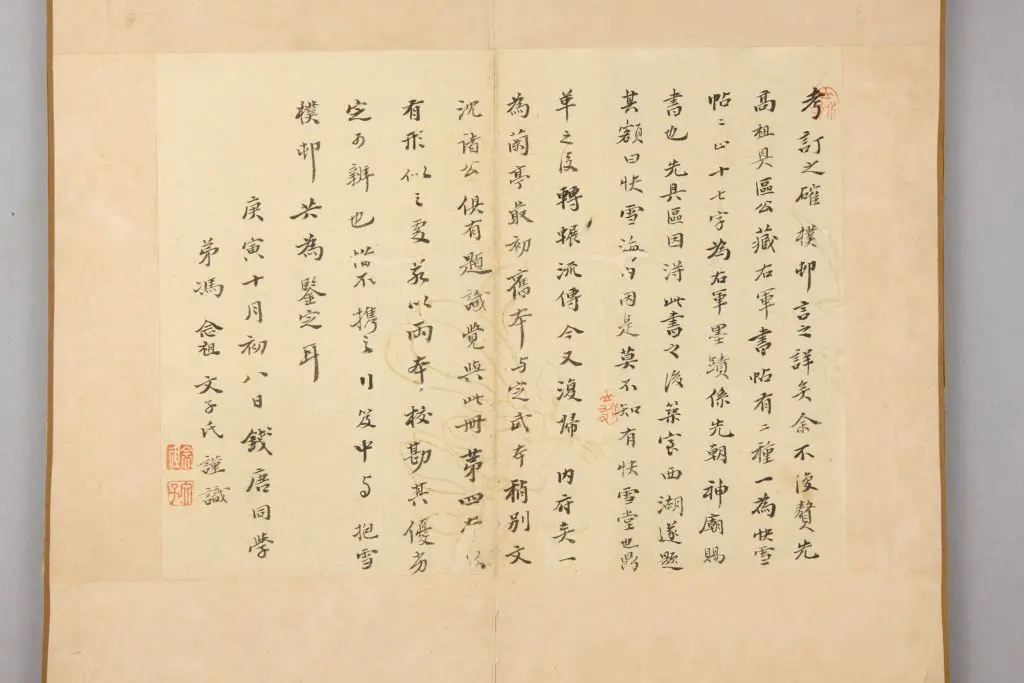 考訂之確樸邨言之詳矣余不復贅先
高祖具區公藏右軍書帖有二種一為快雪
帖二止十七字為右軍墨蹟係先朝神廟賜
書也先具區因淂此書之後築室西湖遂題
其額曰快雪海內因是莫不知有快雪堂也鼎
革之後轉輾流傳今又復歸內府矣一
為蘭亭最初舊本与定武本稍別文
沈諸公俱有題識覺與此冊第四本
有形似之處若以兩本校勘其優劣
定可辨也惜不攜之行笈中与抱雪
樸邨共為鑒定耳
庚寅十月初八日錢唐同學
弟馮念祖文子氏謹識
念祖
文子